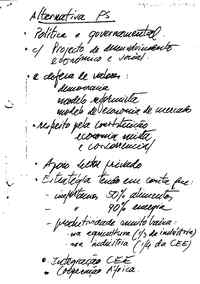 Alternativa PS
• Política e governamental
• c/ Projecto de desenvolvimento
económico e social
• e defesa de valores:
democracia
modelo reformista
modelo de economia de mercado
• respeito pela constituição
economia mista
e concorrencial
• Apoio sector privado
• Estratégia tendo em conta que:
- importamos 50% alimentos
- " 90% energia
- produtividade muito baixa:
- na agricultura (1/3 da indústria)
- na indústria (1/4 da CEE)
• Integração CEE
• Cooperação África